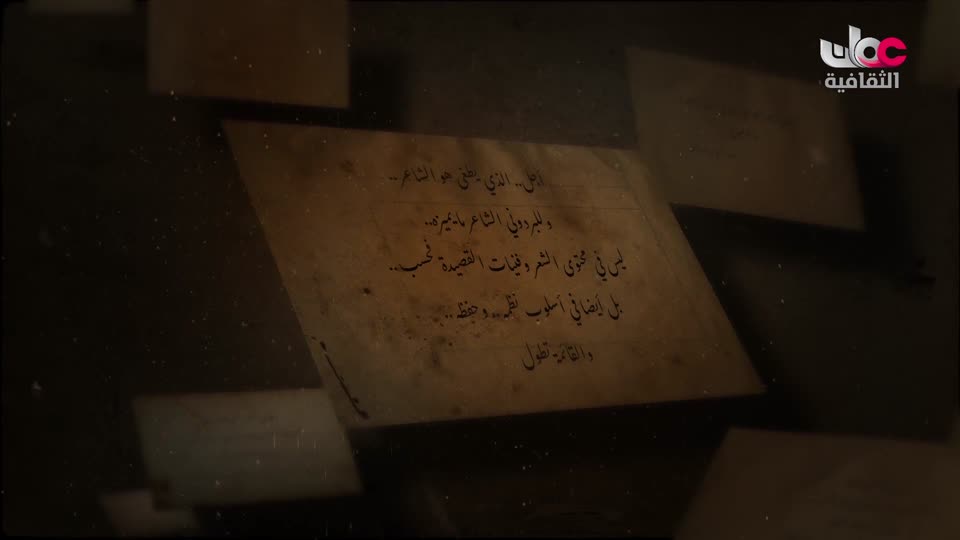 عمان
الثقافية
أجل.. الذي يطغى هو الشاعر..
وللبردوني الشاعر ما يميزه..
ليس في محتوى الشعر وفنيات القصيدة فحسب..
بل أيضا في أسلوب نظمه.. وحفظه..
والقائمة تطول